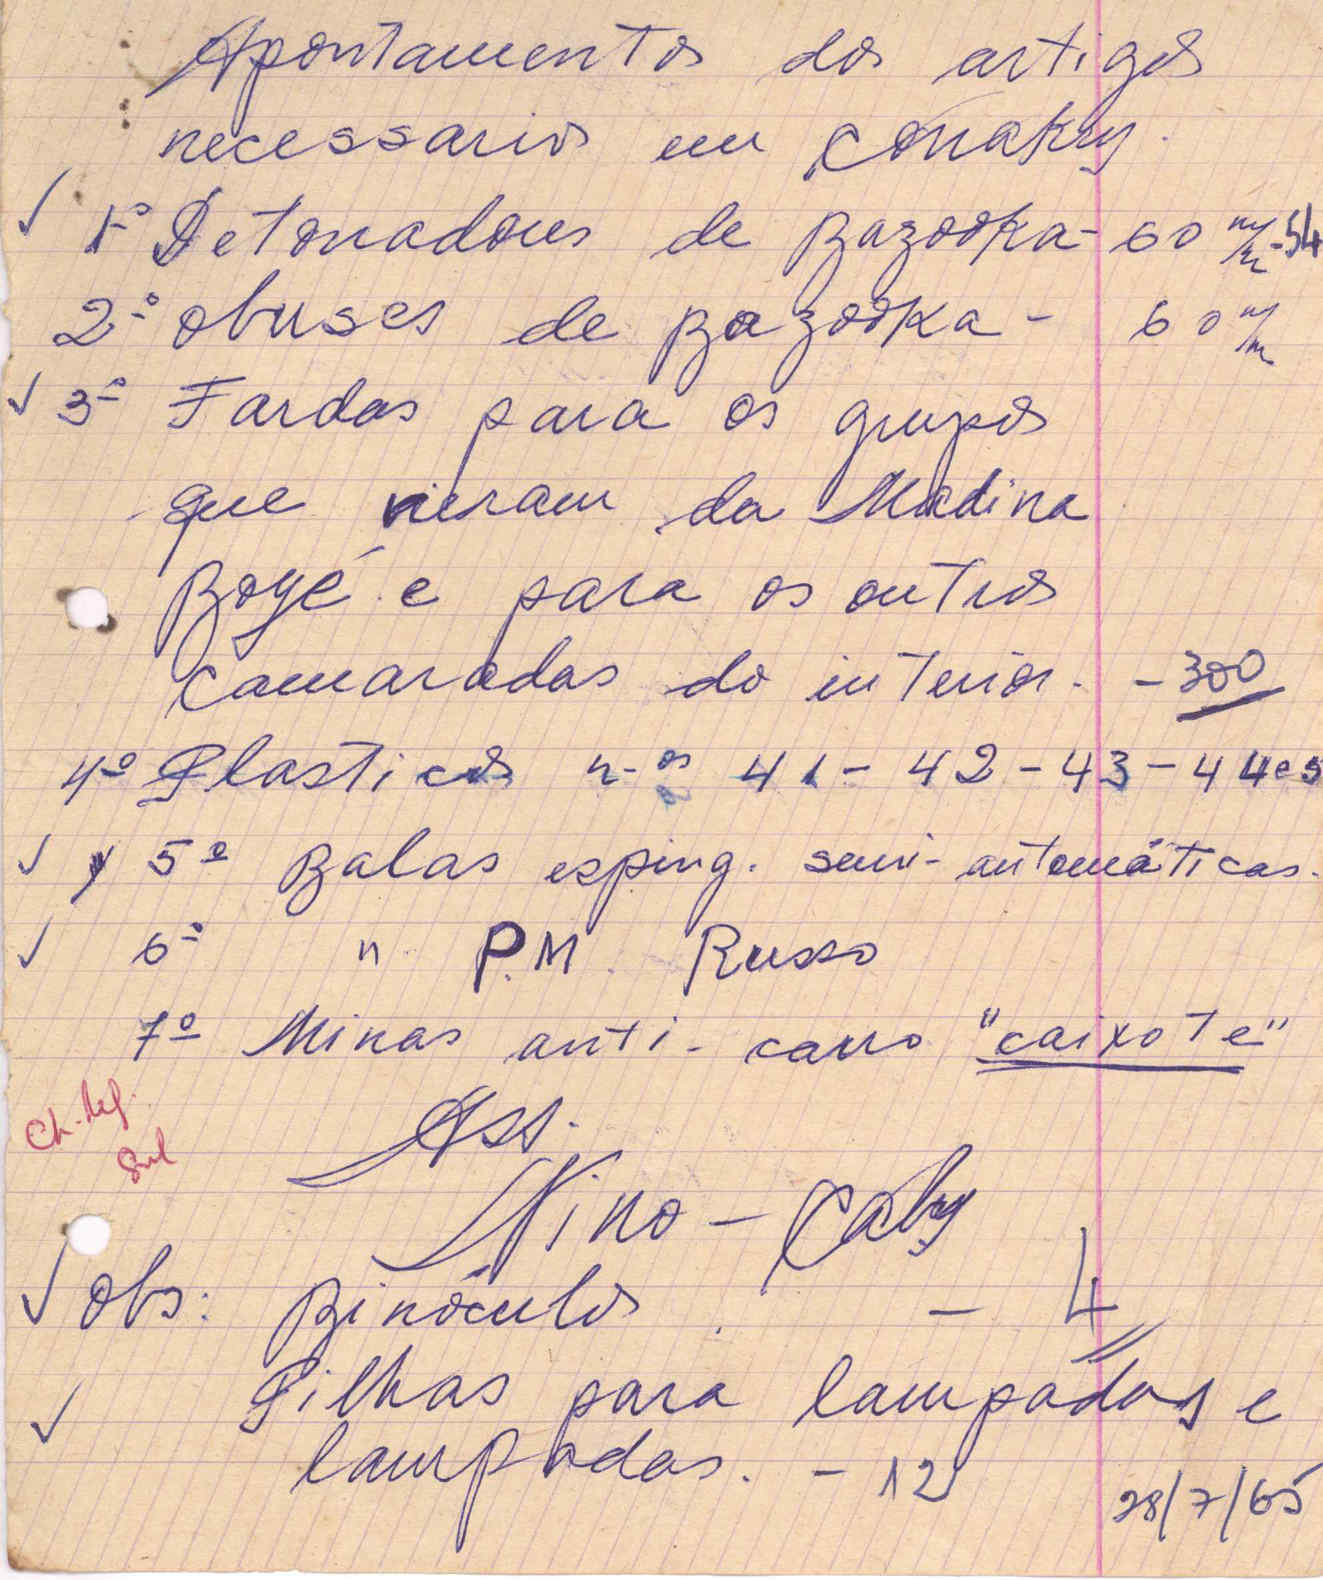 Apontamentos dos artigos
necessarios em Conakry.
✓ 1º Detonadores de Bazooka - 60 m/m - 54
2º obuses de Bazooka - 60 m/m
✓ 3º Fardas para os grupos
que vieram da Madina
Boyé e para os outros
camaradas do interior. - 300
4º Plasticos n.os 41 - 42 - 43 - 44 e 5
✓ 5º Balas esping. semi-automáticas.
✓ 6º " P.M. Russo
7º Minas anti-carro "caixote"
Ass.
Nino - Caby
✓ obs: Binóculos. - 4
✓ Pilhas para lampadas e
lampadas. - 12
28/7/65